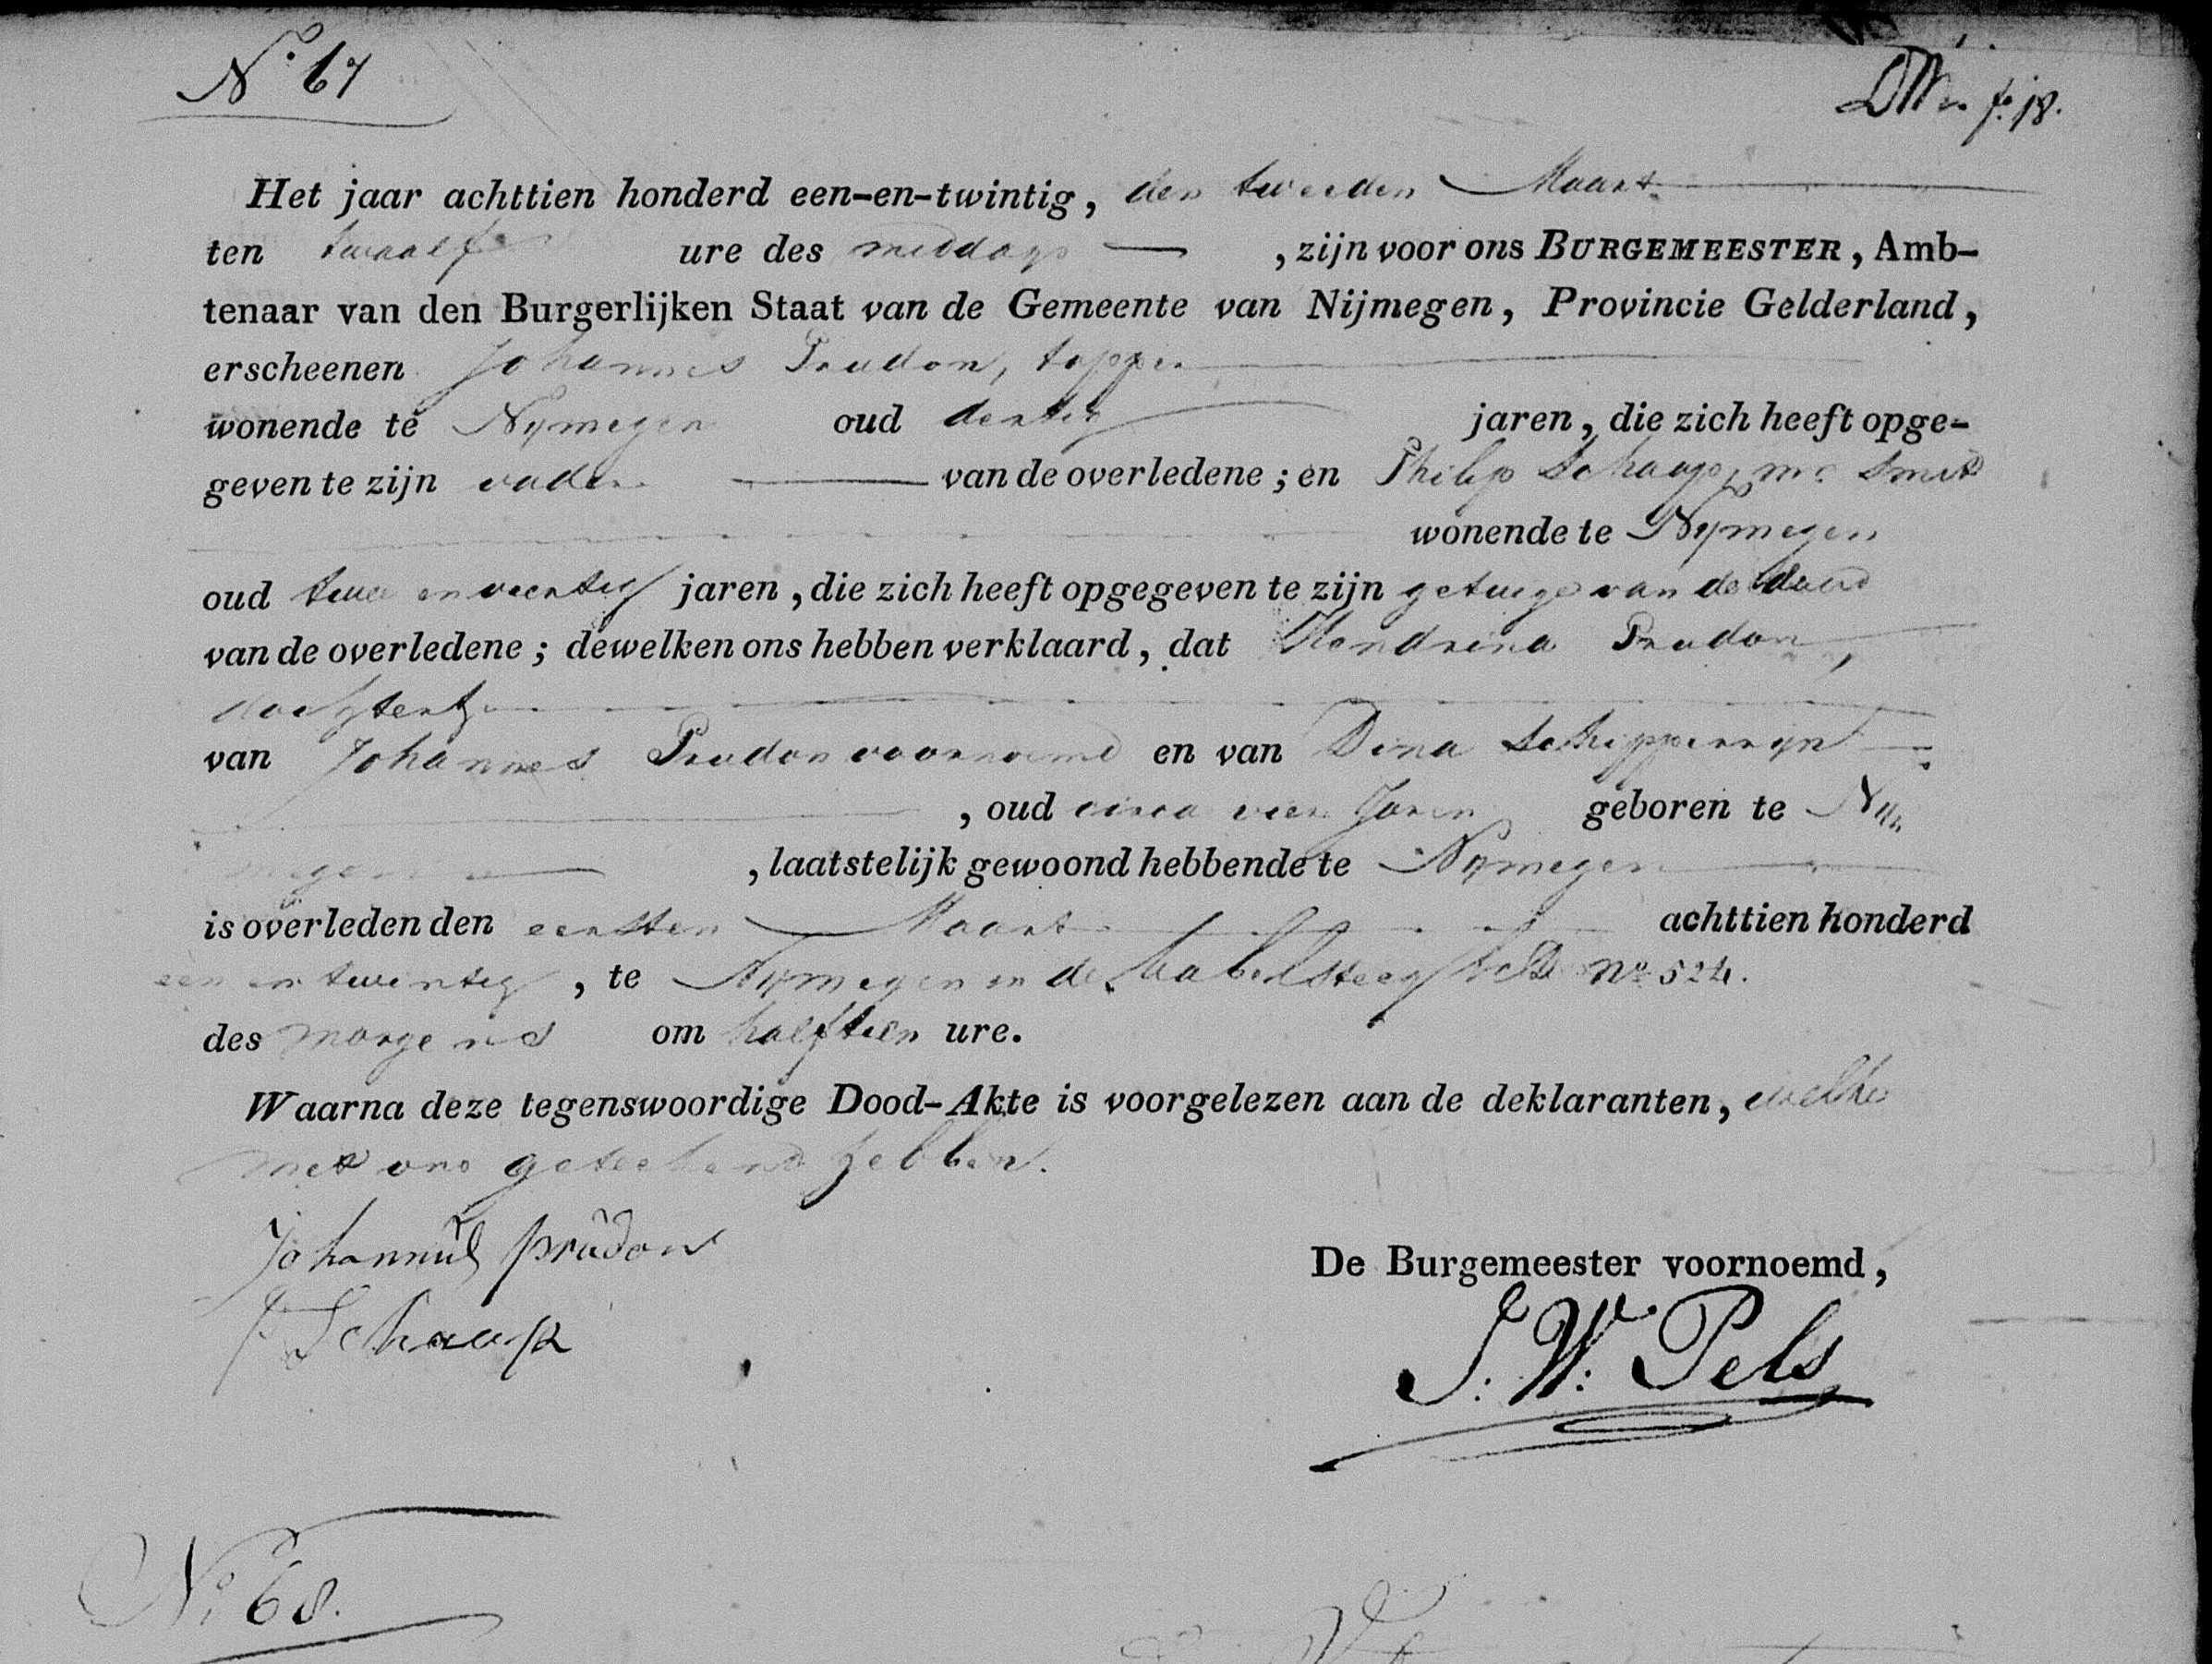 No 67
fo. 18.
Het jaar achttien honderd een-en-twintig, den tweeden Maart
ten twaalf ure des middags , zijn voor ons BURGEMEESTER, Amb-
tenaar van den Burgerlijken Staat van de Gemeente van Nijmegen, Provincie Gelderland,
erscheenen Johannes Prudon, tapper
wonende te Nymegen oud dertig jaren, die zich heeft opge-
geven te zijn vader van de overledene; en Philip Schaap, mr Smit
wonende te Nymegen
oud twee en veertig jaren, die zich heeft opgegeven te zijn getuige van de dood
van de overledene; dewelken ons hebben verklaard, dat Hendrina Prudon,
dochtertje
van Johannes Prudon voornoemd en van Dina Schipperyn
, oud circa vier Jaren geboren te Ny
megen , laatstelijk gewoond hebbende te Nymegen
is overleden den eersten Maart achttien honderd
een en twintig , te Nymegen in de No 524.
des morgens om half tien ure.
Waarna deze tegenswoordige Dood-Akte is voorgelezen aan de deklaranten, welke
met ons geteekend hebben.
Johannes prudon
P Schaap
De Burgemeester voornoemd,
J. W. Pels
No 68.